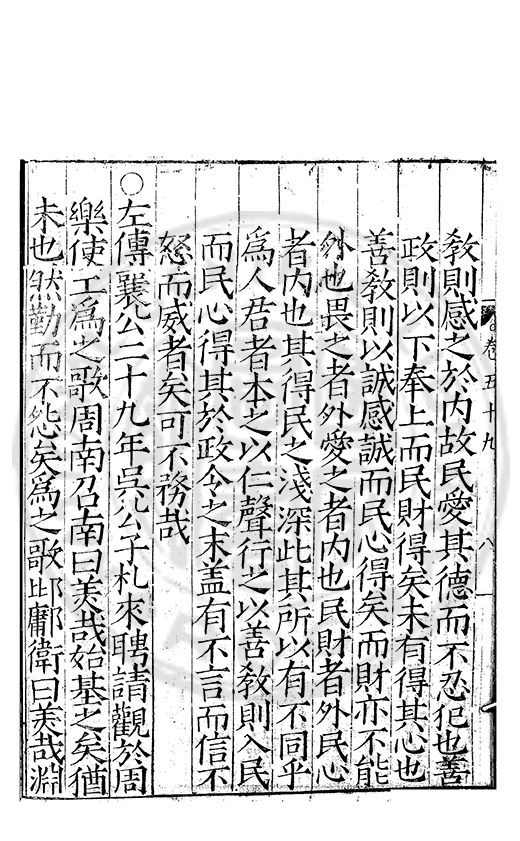 教則感之於内故民愛其德而不忍犯也善
卷五十九 八
政則以下奉上而民財得矣未有得其心也
善教則以誠感誠而民心得矣而財亦不能
外也畏之者外愛之者内也民財者外民心
者内也其得民之淺深此其所以有不同乎
爲人君者本之以仁聲行之以善教則入民
而民心得其於政令之末盖有不言而信不
怒而威者矣可不務哉
○左傳襄公二十九年吳公子札來聘請觀於周
樂使工爲之歌周南召南曰美哉始基之矣猶
未也然勤而不怨矣爲之歌邶鄘衛曰美哉淵